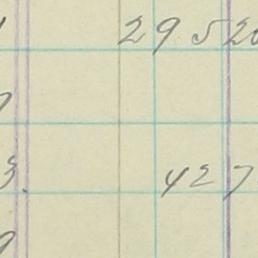 29 5 20
7
3. 427